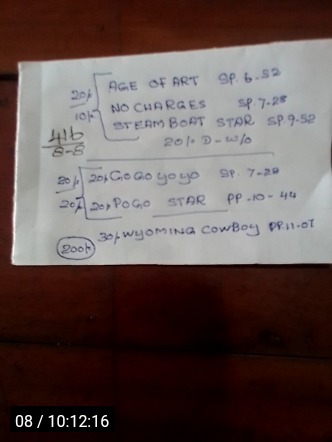 20/- AGE OF ART SP. 6-52
10/- NO CHARGES SP. 7-28
STEAM BOAT STAR SP 9-52
416
S-S
20/- D-W/O
20/- 20/- GO GO YO YO SP. 7-28
20/- 20/- POGO STAR PP-10-44
30/- WYOMING COWBOY PP.11-07
200/-
08 / 10/12/16